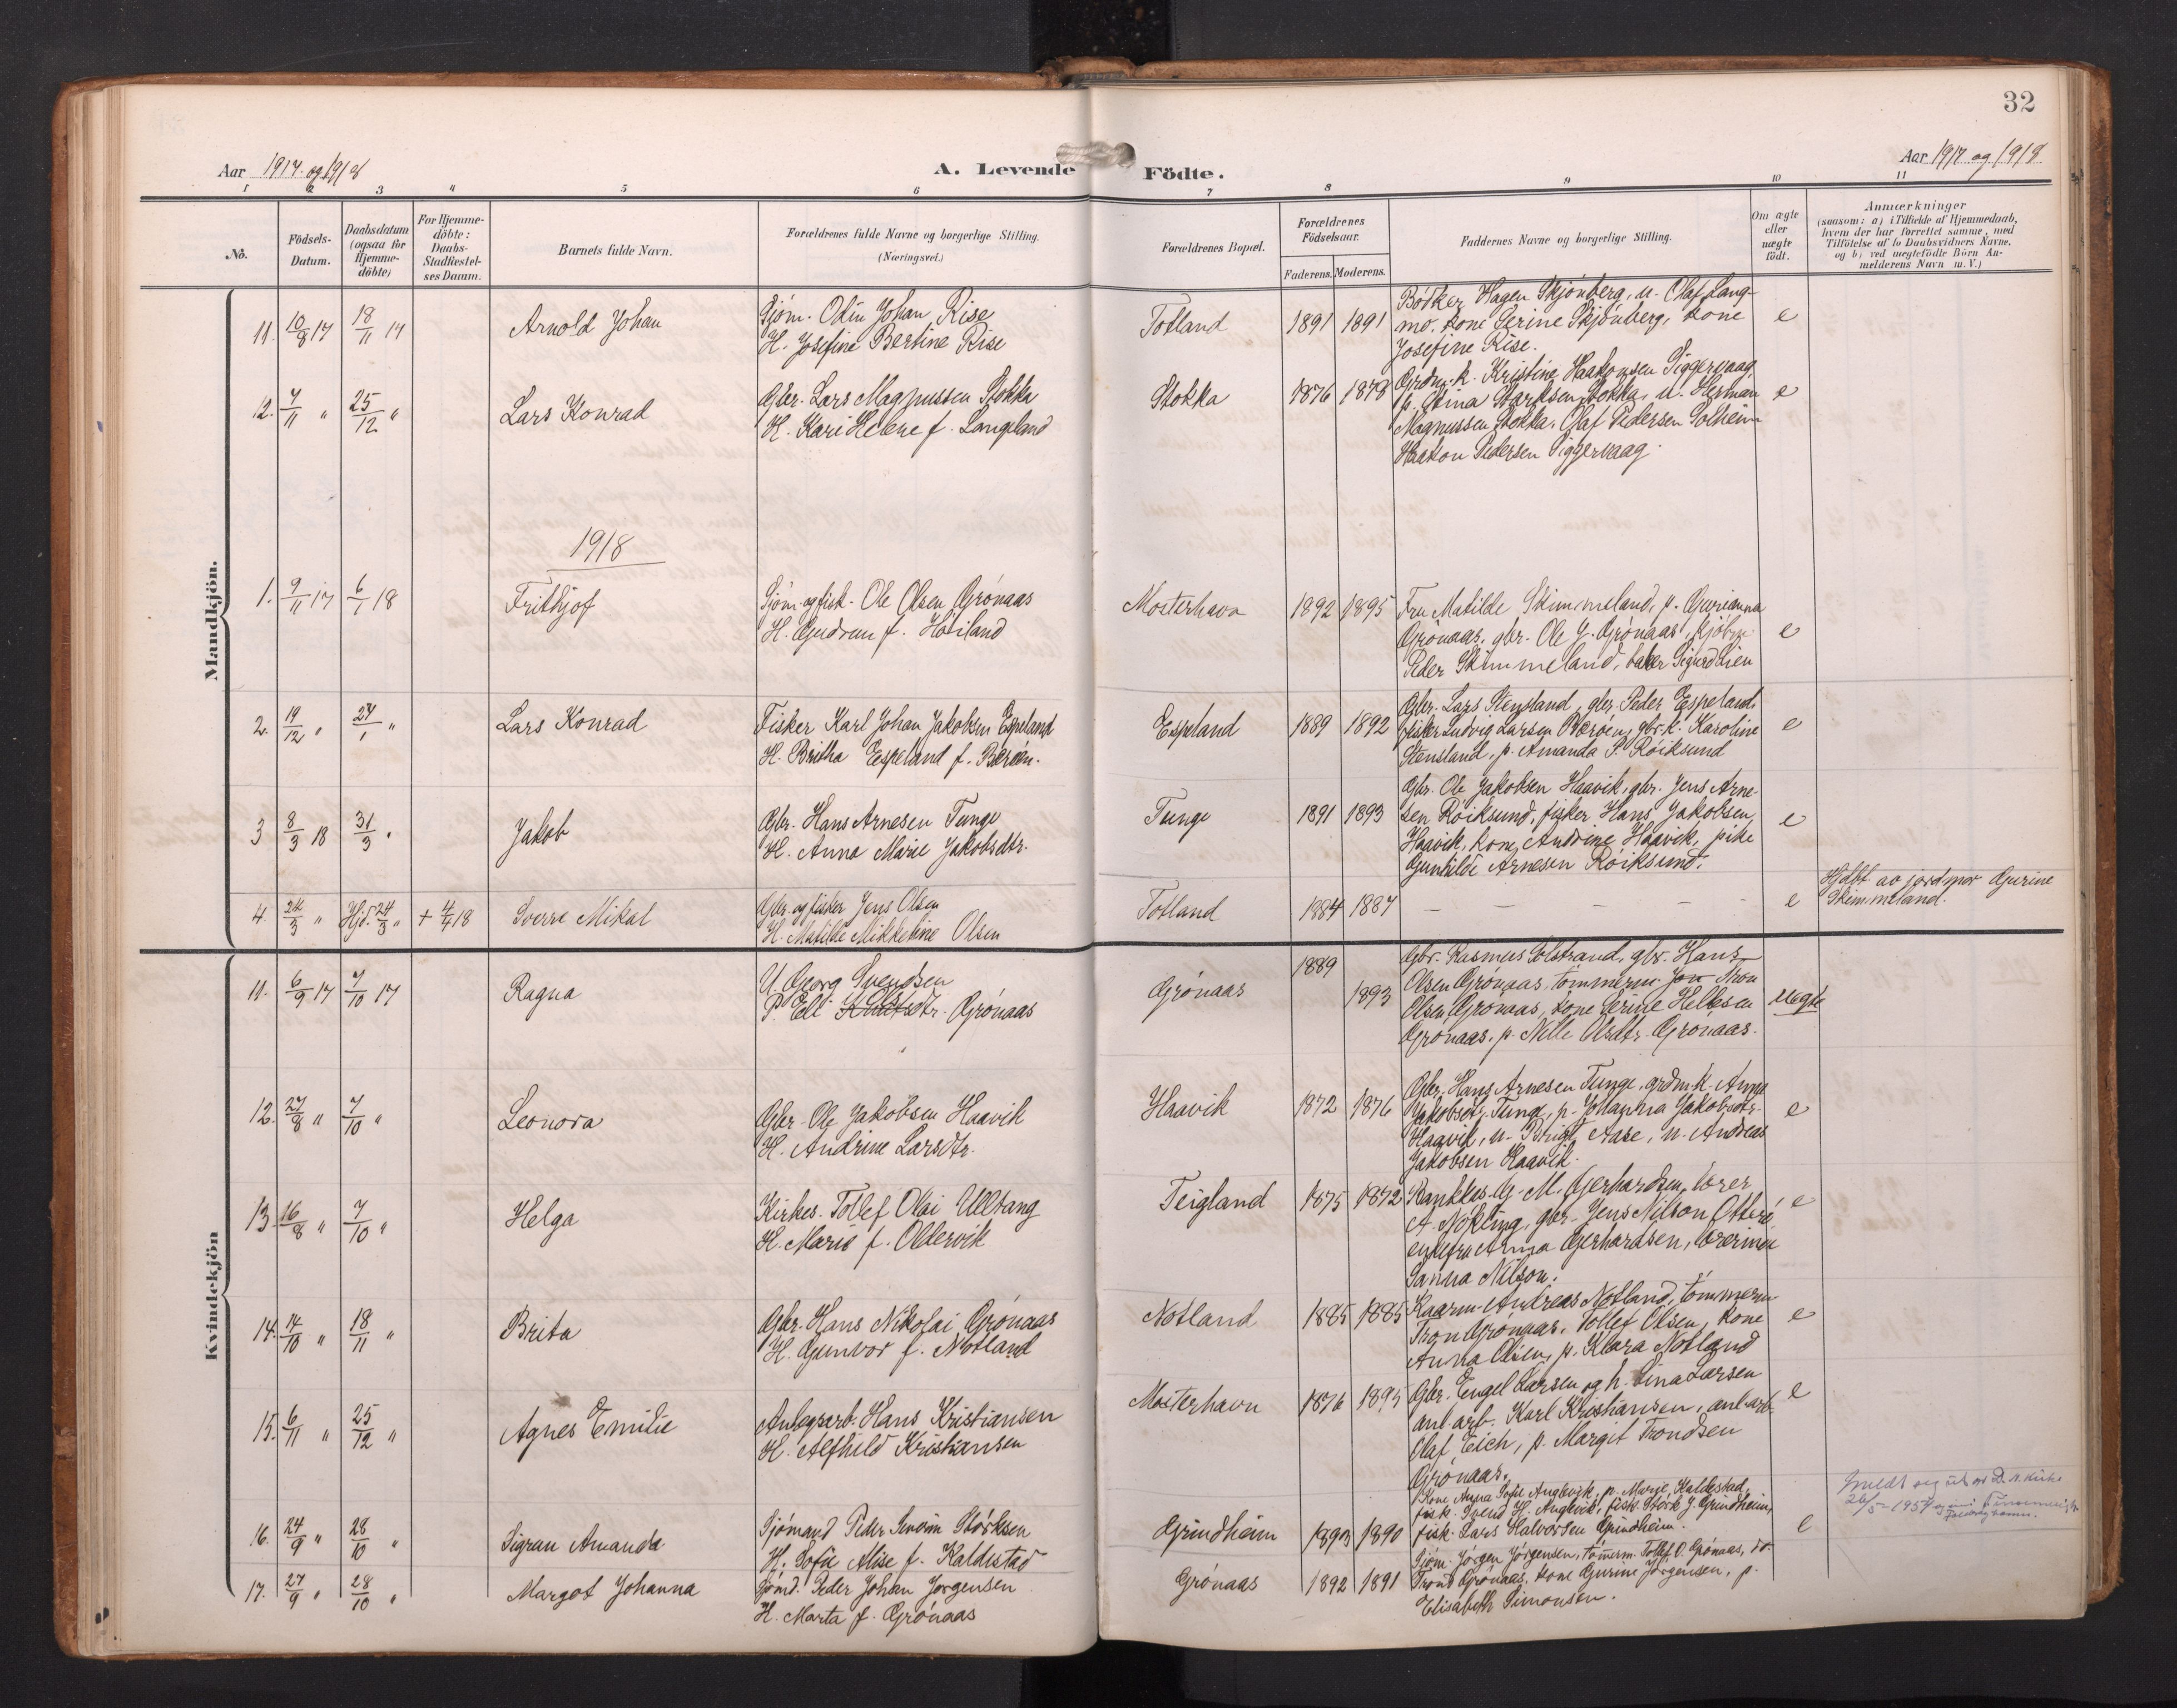 32
Aar 1917 og 1918
A. Levende
Födte.
Aar 1917 og 1918
1 2 3 4 5 6 7 8 9 10 11
No.
Födsels-
Datum.
Daabsdatum
(ogsaa for
Hjemme-
döbte)
For Hjemme-
döbte:
Daabs-
Stadfæstel-
ses Datum.
Barnets fulde Navn.
Forældrenes fulde Navne og borgerlige Stilling.
(Næringsvei.)
Forældrenes Bopæl.
Forældrenes
Födselsaar.
Faderens. Moderens.
Faddernes Navne og borgerlige Stilling.
Om ægte
eller
uægte
födt.
Anmærkninger
(saasom: a) i Tilfælde af Hjemmedaab,
hvem der har forrettet samme, med
Tilföielse af to Daabsvidners Navne,
og b) ved uegtefödte Börn An-
melderens Navn m. V.)
Mandkjön.
11. 10/8 17 18/11 17 Arnold Johan
Sjöm. Odin Johan Rise
H. Josefine Bertine Rise
Totland 1891 1891
Bödker Hagen Skjönberg, u. Olaf Lang-
mo, kone Serine Skjönberg, kone
Josefine Rise.
e
12. 7/11 " 25/12 " Lars Konrad
Gbr. Lars Magnussen Stokka
H. Kari Helene f. Langeland
Stokka 1876 1878
Grdm.k. Kristine Haakonsen Siggervaag,
p. Stina Larsen Stokka, u. Herman
Magnussen Stokka, Olaf Pedersen Solheim
Haakon Pedersen Siggervaag.
e
1918
1. 9/11 17 6/1 18 Frithjof
Sjöm. og fisk. Ole Olsen Grönaas
H. Gudrun f. Höiland
Mosterhavn 1892 1895
Fru Matilde Skimmeland, p. Gurianna
Grönaas, gbr. Ole G. Grönaas, kjöbm.
Peder Skimmeland, baker Sigurd Lien
e
2. 19/12 " 27/1 " Lars Konrad
Fisker Karl Johan Jakobsen Espeland
H. Britha Espeland f. Bæröen.
Espeland 1889 1892
Gbr. Lars Stensland, gbr. Peder Espeland,
fisker Ludvig Larsen Bæröen, gbr.k. Karoline
Stensland, p. Amanda P. Röiksund
e
3 8/3 18 31/3 " Jakob
Gbr. Hans Arnesen Tunge
H. Anna Marie Jakobsdtr.
Tunge 1891 1893
Gbr. Ole Jakobsen Haavik, gbr. Jens Arne-
sen Röiksund, fisker Hans Jakobsen
Haavik, kone Andrine Haavik, pike
Gunhilde Arnesen Röiksund.
e
4 24/3 " Hjd. 24/3 " + 4/4 18 Sverre Mikal
Gbr. og fisker Jens Olsen
H. Matilde Mikkeline Olsen
Totland 1884 1887 - - - - -
e
Hjdbt av jordmor Gurine
Skimmeland.
Kvindekjön
11. 6/9 17 7/10 17 Ragna
U. Georg Svendsen
P. Eli Olsdtr. Grönaas
Grönaas 1889 1893
Gbr. Rasmus Solstrand, gbr. Hans
Olsen Grönaas, tömmerm. Jon Tron
Olsen Grönaas, kone Serine Hellesen
Grönaas, p. Nille Olsdtr. Grönaas.
uegte
12. 27/8 " 7/10 " Leonora
Gbr. Ole Jakobsen Haavik
H. Andrine Larsdtr.
Haavik 1872 1876
Gbr. Hans Arnesen Tunge, grdm.k. Anna
Jakobsdtr. Tunge, p. Johanna Jakobsdtr.
Haavik, u. Brigt Aase, u. Andreas
Jakobsen Haavik.
e
13. 16/8 " 7/10 " Helga
Kirkes. Tollef Olai Ulltang
H. Marie f. Oldervik
Teigland 1875 1872
Bankkas. G. M. Gjerhardsen, lærer
A. Nökling, gbr. Jens Nilson Otterö,
enkefru Anna Gjerhardsen, lærerinde
Sanna Nilson.
e
14. 14/10 " 18/11 " Brita
Gbr. Hans Nikolai Grönaas
H. Gunvor f. Notland
Notland 1885 1885
Kaarm. Andreas Notland, tömmerm
Tron Grönaas, Tollef Olsen, kone
Anna Olsen, p. Klara Notland
e
15. 6/11 " 25/12 " Agnes Emilie
Anlegsarb. Hans Kristiansen
H. Alfhild Kristiansen
Mosterhavn 1876 1895
Gbr. Engel Larsen og h. Lina Larsen
anl.arb. Karl Kristiansen, anl.arb.
Olaf Eich, p. Margit Trondsen
Grönaas.
e
16. 24/9 " 28/10 " Sigrun Amanda
Sjömand Peder Severin Störksen
H. Sofie Alise f. Kaldestad
Grindheim 1893 1890
Kone Anna Sofie Anglevik, p. Marie Kaldestad,
fisk. Svend H. Anglevik, fisk. Störk J. Grindheim,
fisk. Lars Halvorsen Grindheim.
e
26/5 - 1954
17. 27/9 " 28/10 " Margot Johanna
Sjömd. Peder Johan Jörgensen
H. Marta f. Grönaas
Grönaas 1892 1891
Sjöm. Jörgen Jörgensen, tömerm. Tollef O. Grönaas, do
Trond Grönaas, kone Gurine Jörgensen, p.
Elisabeth Simonsen.